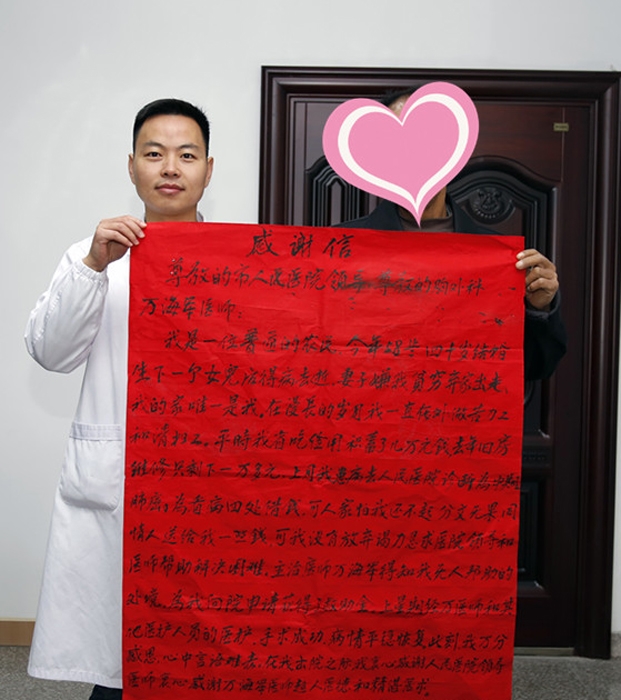 感谢信
尊敬的市人民医院领导 尊敬的胸外科
万海军医师：
我是一位普通的农民，今年 四十岁结婚
生下一个女儿 得病去逝，妻子嫌我贫穷弃家出走，
我的家唯一是我。在漫长的岁月我一直在外做苦力工
和清扫工。平时我省吃俭用积蓄了几万元钱去年旧房
维修只剩下一万多元。上月我患病去人民医院诊断为
肺癌。为看病四处借钱，可人家怕我还不起 分文无果，同
情人送给我一些钱，可我没有放弃竭力恳求医院领导和
医师帮助解决困难。主治医师万海军得知我无人帮助的
处境，为我向院申请获得了救助金。上星期给万医师和其
他医护人员的医护，手术成功，病情平稳恢复，此刻我万分
感恩，心中言语难表，在我出院之际我衷心感谢人民医院领导
医师衷心感谢万海军医师超人医德和精湛医术